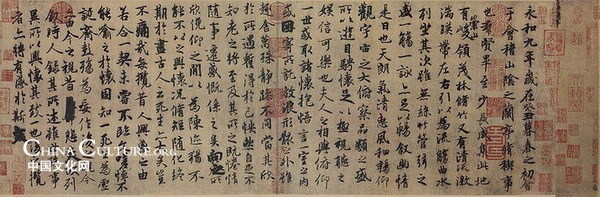 永和九年歲在癸丑暮春之初會
于會稽山陰之蘭亭脩稧事
也羣賢畢至少長咸集此地
有崇山峻領茂林脩竹又有清流激
湍暎帶左右引以為流觴曲水
列坐其次雖無絲竹管弦之
盛一觴一詠亦足以暢敘幽情
是日也天朗氣清惠風和暢仰
觀宇宙之大俯察品類之盛
所以遊目騁懷足以極視聽之
娛信可樂也夫人之相與俯仰
一世或取諸懷抱悟言一室之內
或因寄所託放浪形骸之外雖
趣舍萬殊靜躁不同當其欣
於所遇蹔得於己怏然自足不
知老之將至及其所之既惓情
隨事遷感慨係之矣向之所
欣俛仰之閒以為陳迹猶不
能不以之興懷況脩短隨化終
期於盡古人云死生亦大矣豈
不痛哉每攬昔人興感之由
若合一契未嘗不臨文嗟悼不
能喻之於懷固知一死生為虛
誕齊彭殤為妄作後之視今
亦由今之視昔悲夫故列
敘時人錄其所述雖世殊事
異所以興懷其致一也後之攬
者亦將有感於斯文
CHINA CULTURE.ORG
中国文化网